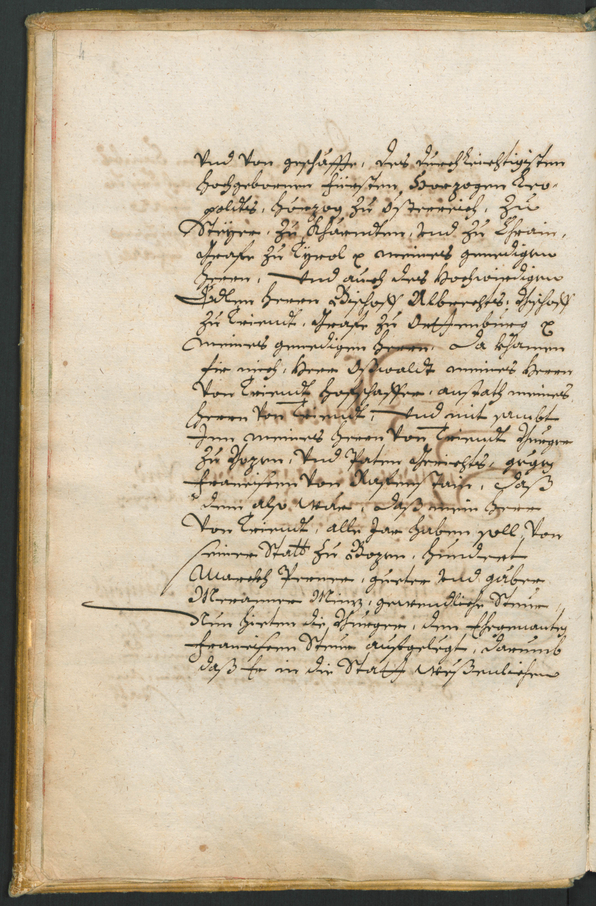 4
Vnd von geschäffte, des durchleüchtigisten
hochgebornnen Fürsten, Herzogen Leo-
poldts, Herzog zu Österreich, zu
Steÿer, zu Khärndten, vnd zu Chrain,
Grafe zu Tyrol p meines genedigen
Herrn, Vnd auch des Hochwirdigen
Edlen Herrn Bischoff Albrechts, Bischoff
zu Triendt, Grafe zu Orttenburg p
meines genedigen Herrn, Da khamen
für mich, Herr Oswaldt meines Herrn
von Triendt Hofschaffer, anstath meines
Herrn von Triendt, Vnd mit sambt
Jme meines Herrn von Triendt Burger
zu Bozen, vnd Paten Gerichts, gegen
Francisen von
dem also were, daß mein Herr
von Triendt, alle Jar haben soll, von
seiner Statt zu Bozen, hundert
Marckh Perner, gueter vnd gäber
Meranner Münz, gewendliche Steuer,
Nun hieten die Burger, dem
Francisen Steur aufgelegt, darumb
daß Er in die Statt